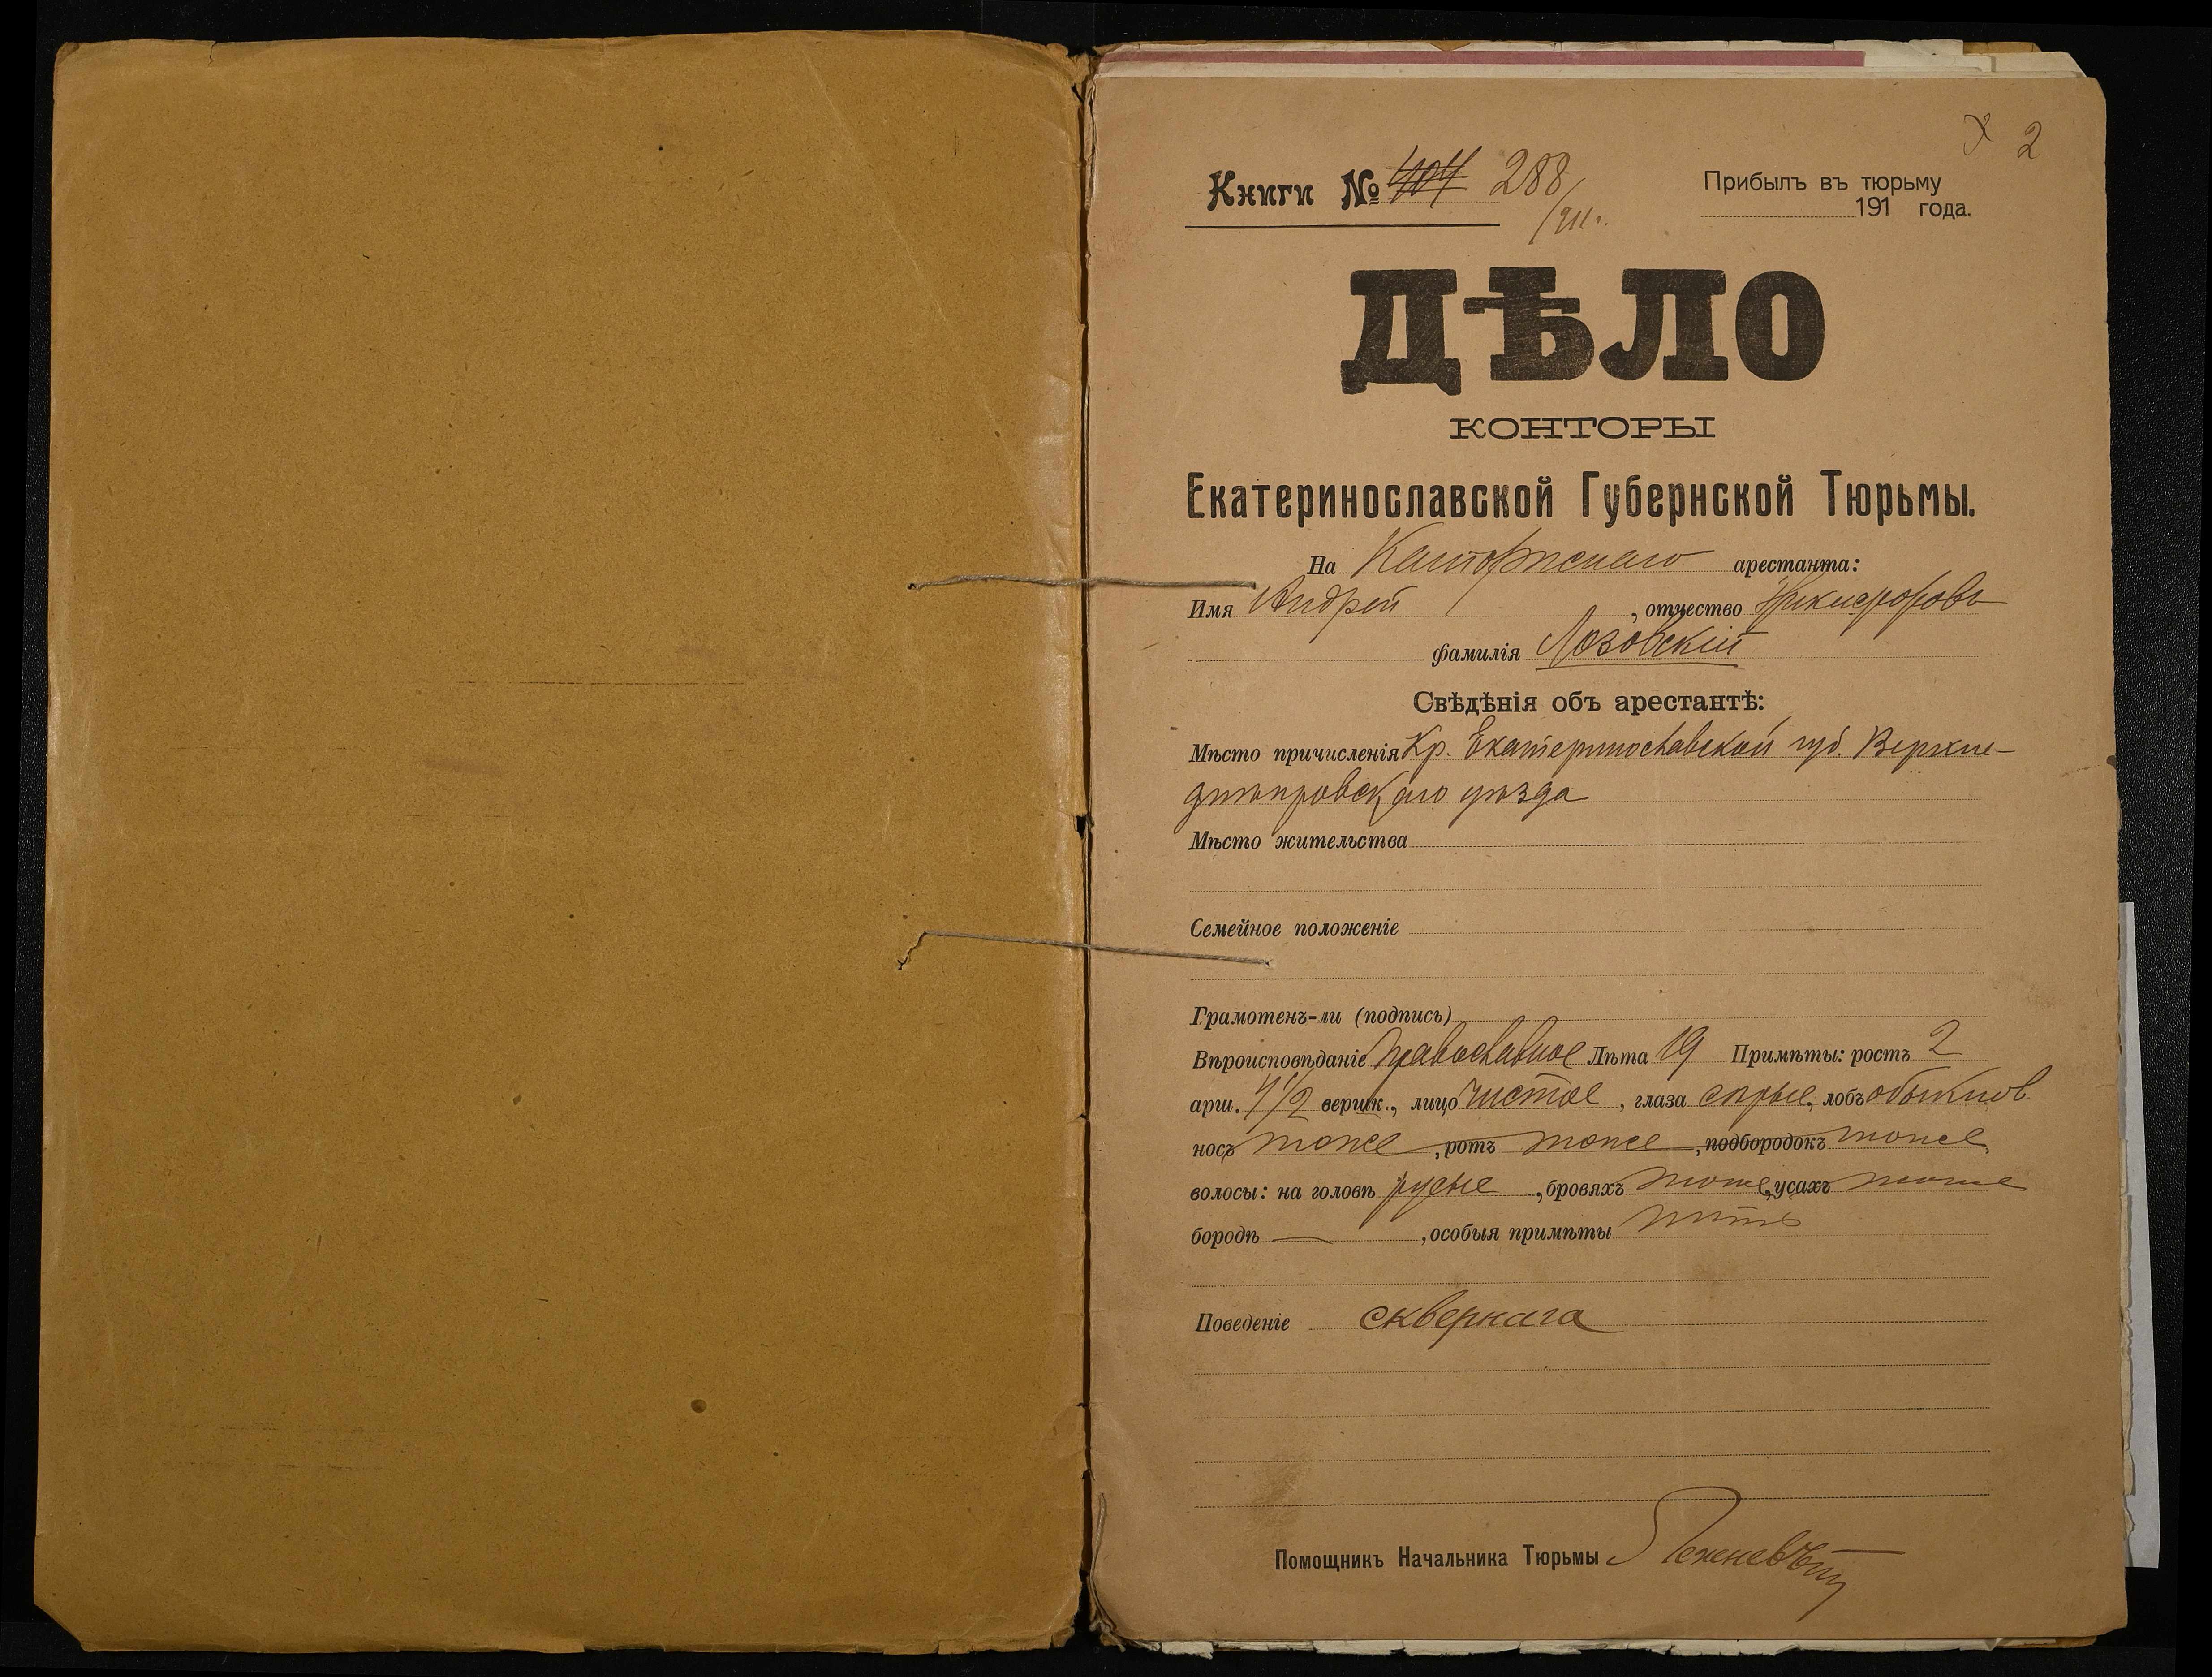 2
Книги № 404 288/911г.
Прибылъ въ тюрьму
191 года.
ДѢЛО
КОНТОРЫ
Екатеринославской Губернской Тюрьмы.
На Каторжнаго арестанта:
Имя Андрей, отчество Никифоровъ
фамилія Лозовскій
Свѣдѣнія объ арестантѣ:
Мѣсто причисленія Кр. Екатеринославской губ. Верхне-
днѣпровскаго уѣзда
Мѣсто жительства
Семейное положеніе
Грамотенъ-ли (подпись)
Вѣроисповѣданіе Православное Лѣта 19 Примѣты: ростъ 2
арш. 4 1/2 вершк., лицо чистое, глаза сѣрые, лобъ обыкнов
носъ тоже, ротъ тоже, подбородокъ тоже
волосы: на головѣ русые, бровяхъ тоже, усахъ тоже
бородѣ —, особыя примѣты нѣтъ
Поведеніе сквернаго
Помощникъ Начальника Тюрьмы